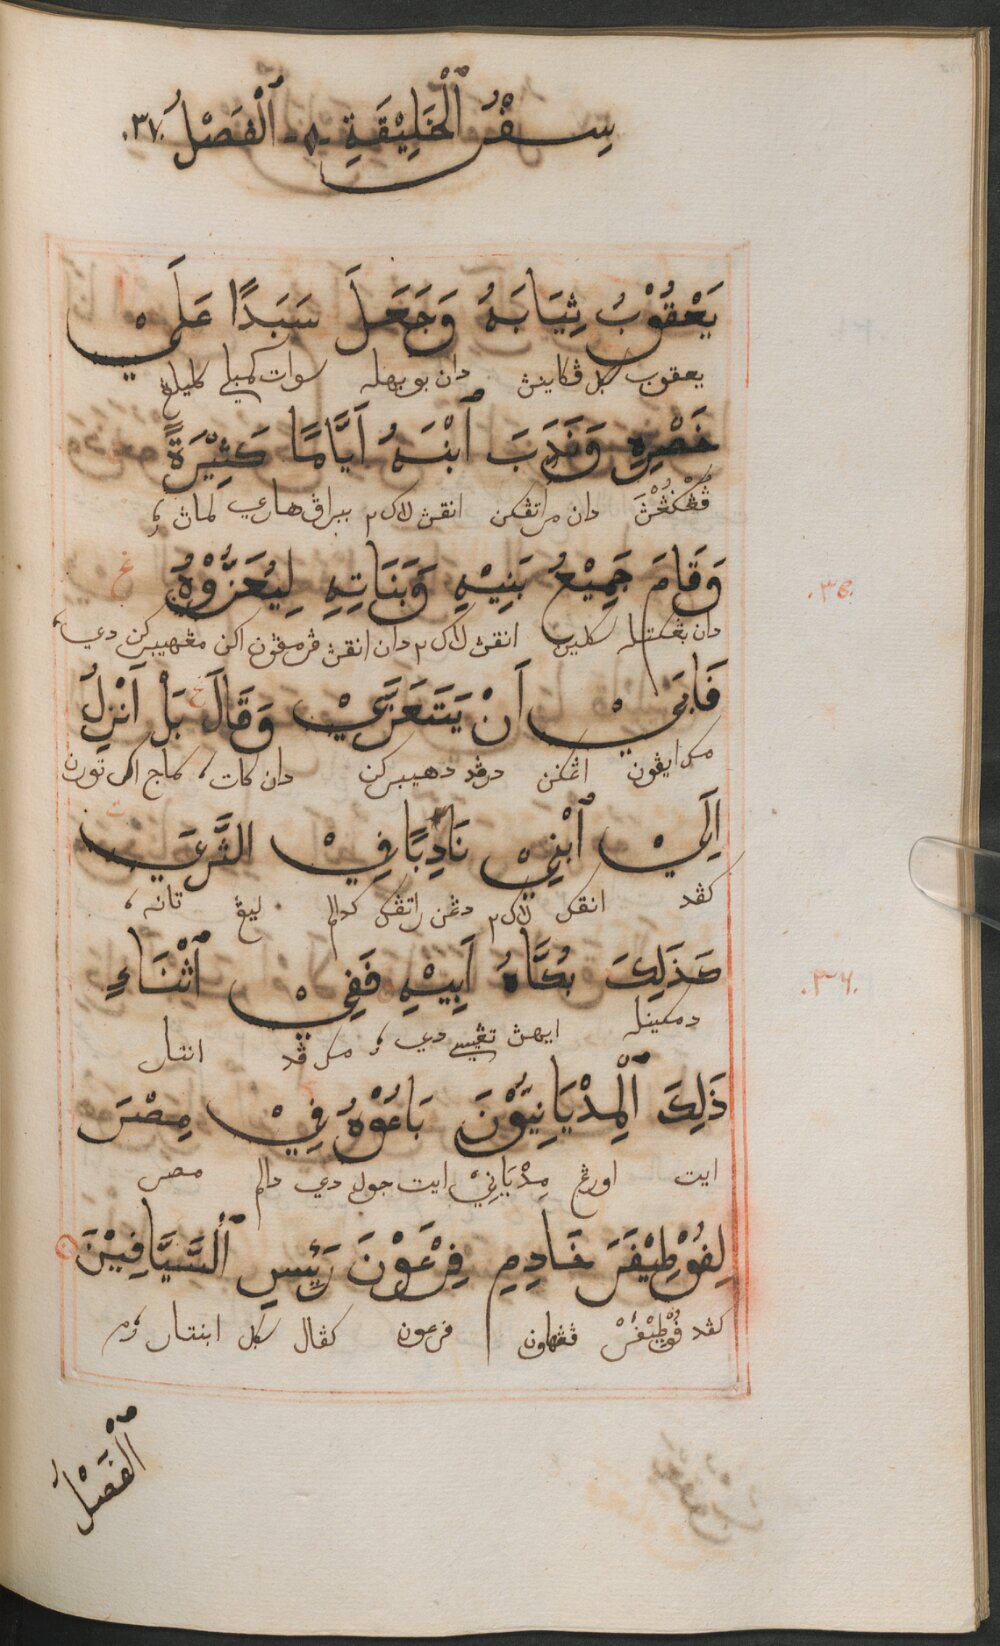 سِفْرُ ٱلْخَلِيْقَةِ ٱلْفَصْلُ .٣٧.
يَعْقُوْبُ ثِيَابَهُ وَجَعَلَ سَبَدًا عَلَيْ
يعقوب سكل ڤكاينڽ دان بوبهله سوات كمبلي كليلڠ
خَصْرِهِ وَنَدَبَ ٱبْنَهُ اَيَّامًا كَثِيْرَةً
دان مراتڤكن انقڽ لاك٢ ببراڤ هاري لماڽ
وَقَامَ جَمِيْعُ بَنِيْهِ وَبَنَاتِهِ لِيُعَزُّوْهُ
.٣٥.
دان بڠكتله سكلين انقڽ لاك٢ دان انقڽ ڤرمڤون اكن مڠهيبركن دي
فَابَيْ اَنْ يَتَعَزَّيْ وَقَالَ بَلْ اَنْزِلُ
مك ايڤون اڠكن درڤد دهيبركن دان كات كاج اك تورن
اِلَيْ ٱبْنِيْ نَادِبًا فِيْ الثَّرَيَ
كڤد انقك لاك٢ دڠن راتڤك كدالم ليڠ تانه
كَذَلِكَ بُكَّاهُ اَبِيْهِ فَفِيْ ٱثْنَاءِ
.٣٦.
دمكينله ايهڽ تڠيسي دي مك ڤد انتال
ذَلِكَ ٱلْمِدْيَانِيُّوْنَ بَاعُوْهُ فِيْ مِصْرَ
ايت اورڠ مِدْيَانِيْ ايت جول دي دالم مصر
لِفُوْطِيْفَرَ خَادِمِ فِرْعَوْنَ رَئِيْسِ ٱلسَّيَّافِيْنَ
كڤد فُوْطِيْفَرْ ڤڠهاون فرعون كڤال سكل
ٱلْفَصْلُ